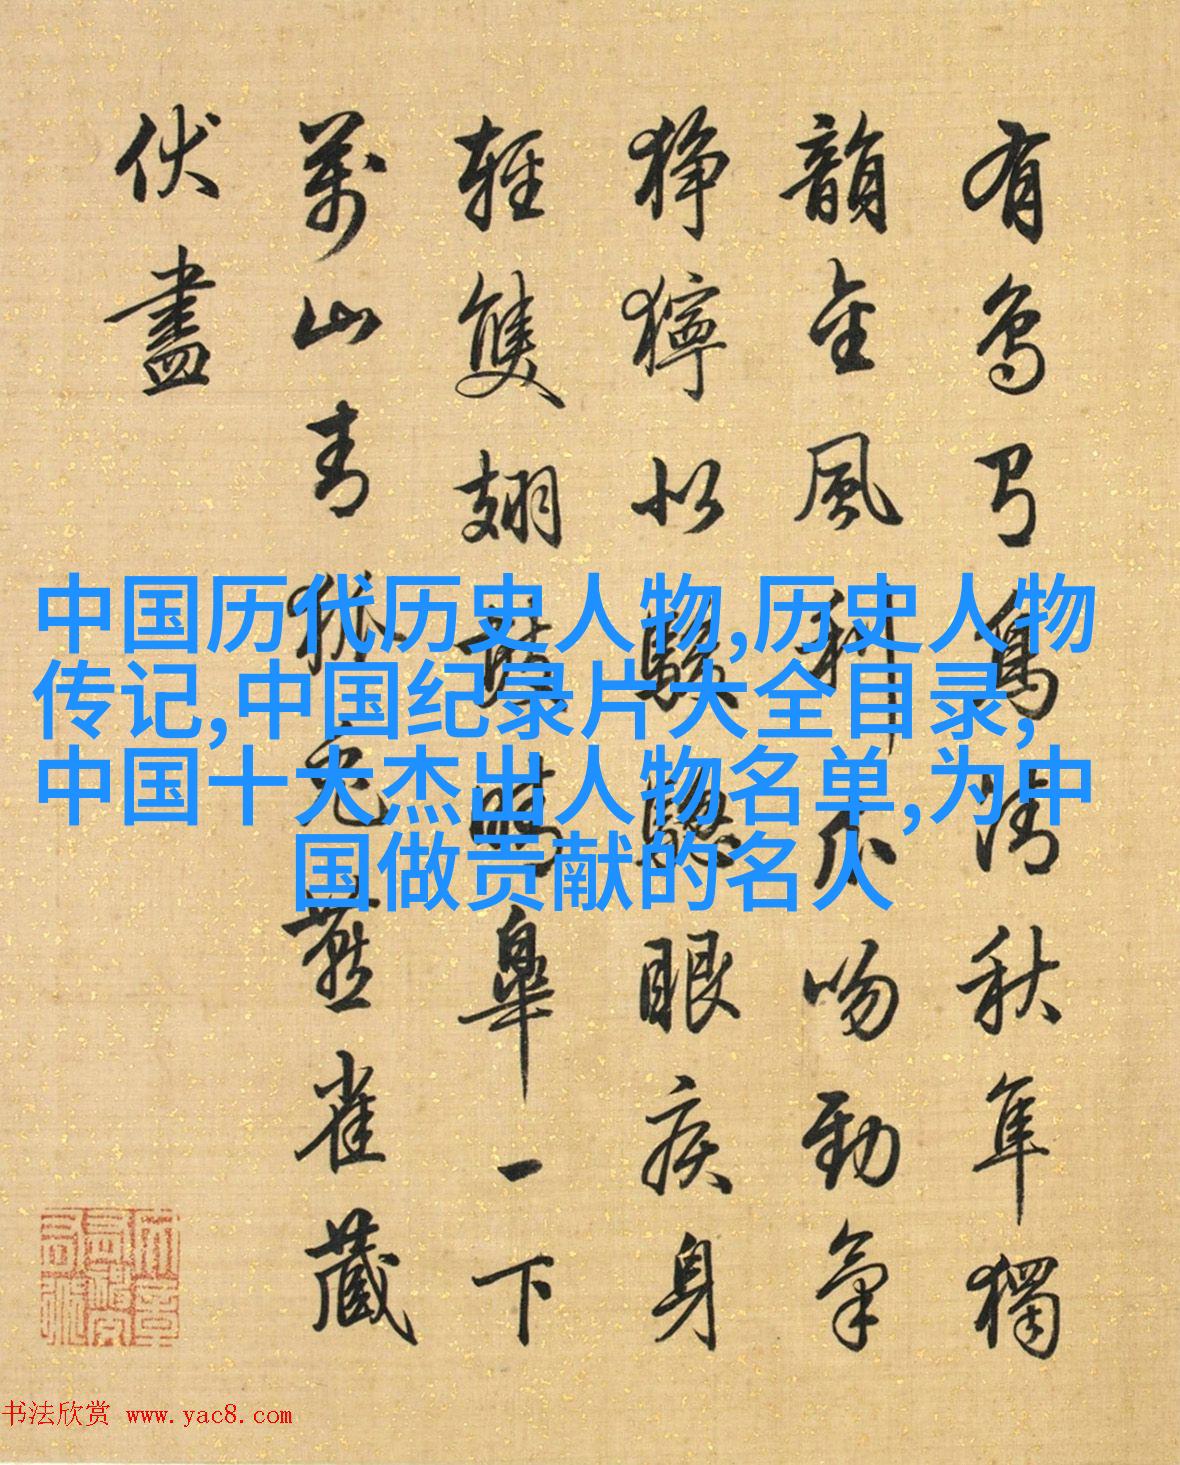 有鳥清秋隼獨
韻金風利吻勁氣
狰獰似眼疾身
輕雙翅皋一下
萬山青狐兔燕雀藏
伏盡
中国历代历史人物,历史人物
传记,中国纪录片大全目录,
中国十大杰出人物名单,为中
国做贡献的名人
书法欣赏 www.yac8.com